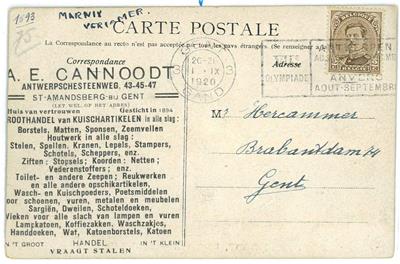 1893
75
MARNIX
VERSAMER.
CARTE POSTALE
La Correspondance au recto n'est pas acceptée par tous les pays étrangers. (Se renseigner à
Correspondance
A. E. CANNOODT
ANTWERPSCHESTEENWEG, 43-45-47
ST-AMANDSBERG BIJ GENT
(LET WEL OP HET ADRES)
Huis van vertrouwen Gesticht in 1894
GROOTHANDEL van KUISCHARTIKELEN in alle slag:
Borstels, Matten, Sponsen, Zeemvellen
Houtwerk in alle slag:
Stelen, Spellen, Kranen, Lepels, Stampers,
Schotels, Scheppers, enz.
Ziften: Stopsels; Koorden: Netten;
Vederenstoffers; enz.
Toilet- en andere Zeepen; Reukwerken
en alle andere opschikartikelen,
Wasch- en Kuischpoeders, Poetsmiddelen
voor schoenen, vuren, metalen en meubelen
Sargiën, Dweilen, Schoteldoeken,
Wieken voor alle slach van lampen en vuren
Lampkatoen, Koffiezakken, Waschzakjes,
Handdoeken, Wat, Katoenborstels, Katoen
IN 'T GROOT HANDEL IN 'T KLEIN
VRAAGT STALEN
Adresse
3 3
20-21
1 · IX
1920
GAND
OLYMPIADE
ANVERS
AOUT-SEPTEMBRE
Mr Hercammer
Brabantdam 74
Gent